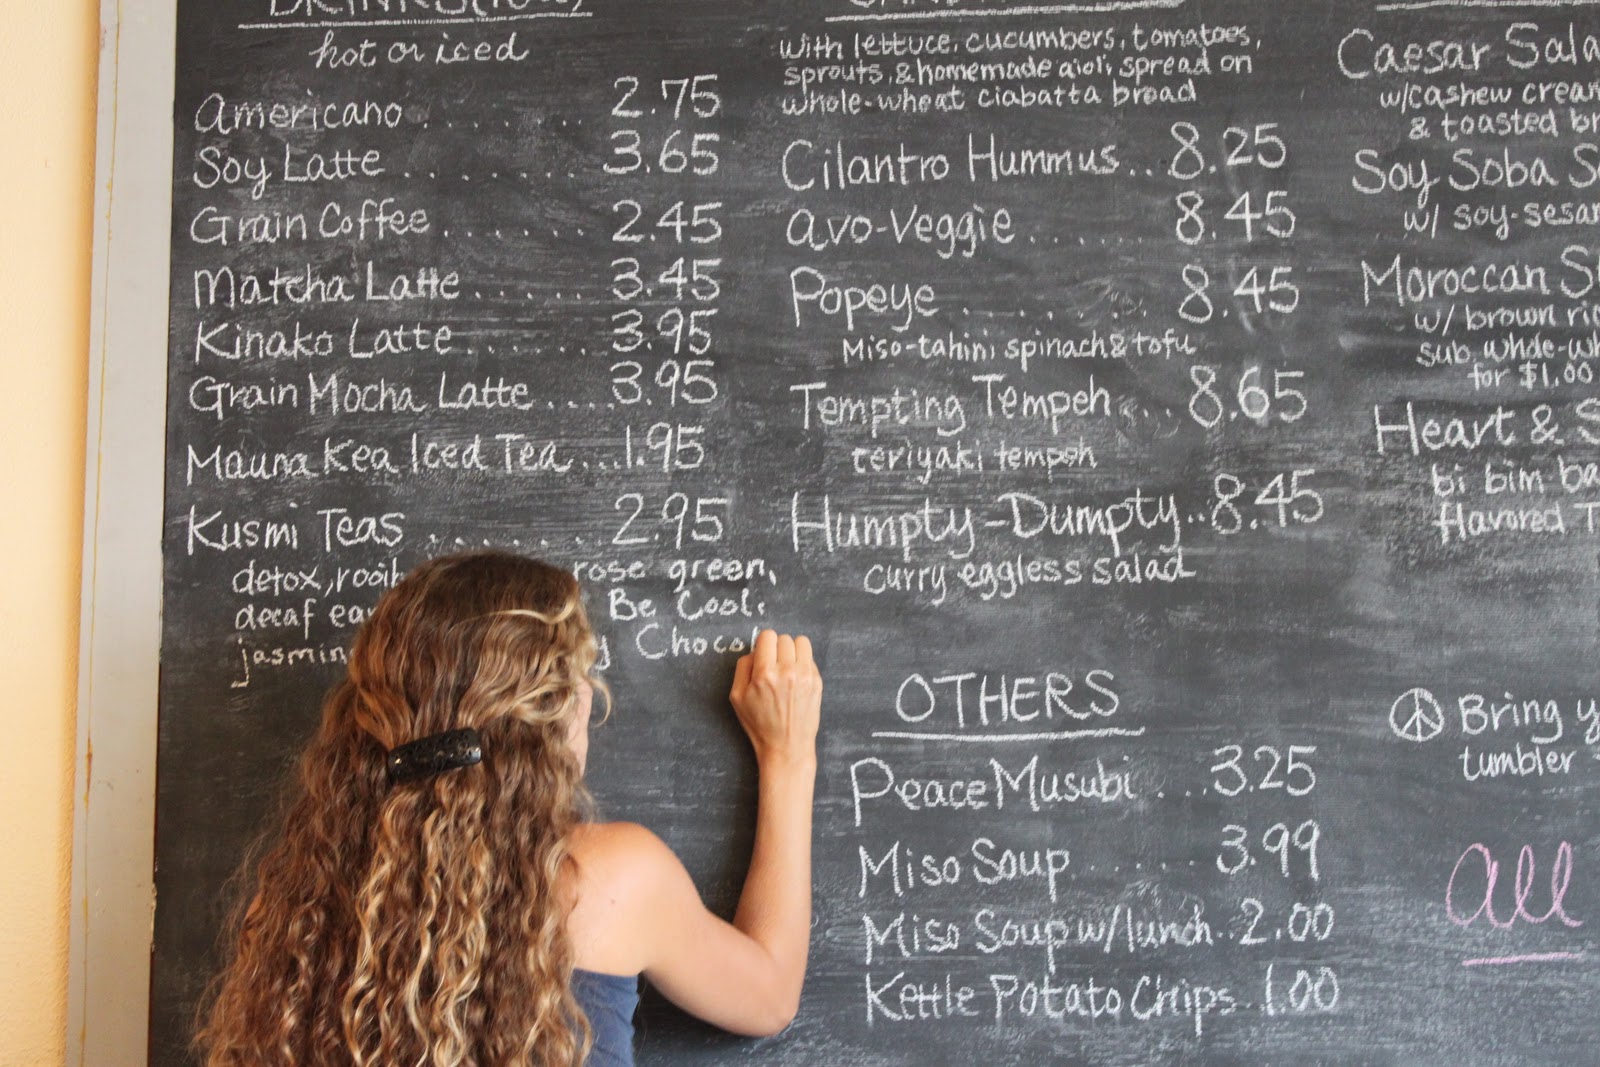 hot or iced
Americano ........ 2.75
Soy Latte ........ 3.65
Grain Coffee ....... 2.45
Matcha Latte ..... 3.45
Kinako Latte ...... 3.95
Grain Mocha Latte .... 3.95
Mauna Kea Iced Tea ... 1.95
Kusmi Teas ....... 2.95
detox, rooib rose green,
decaf ear Be Cool,
jasmin y Chocol
with lettuce, cucumbers, tomatoes,
sprouts, & homemade aioli, spread on
whole-wheat ciabatta bread
Cilantro Hummus .. 8.25
Avo-Veggie ...... 8.45
Popeye ........ 8.45
Miso-tahini spinach & tofu
Tempting Tempeh ... 8.65
teriyaki tempeh
Humpty-Dumpty .. 8.45
curry eggless salad
OTHERS
Peace Musubi ... 3.25
Miso Soup ..... 3.99
Miso Soup w/lunch .. 2.00
Kettle Potato Chips .. 1.00
Caesar Sala
w/cashew cream
& toasted br
Soy Soba S
w/ soy-sesam
Moroccan S
w/ brown ric
sub whole-wh
for $1.00
Heart & S
bi bim ba
flavored T
Bring y
tumbler
all